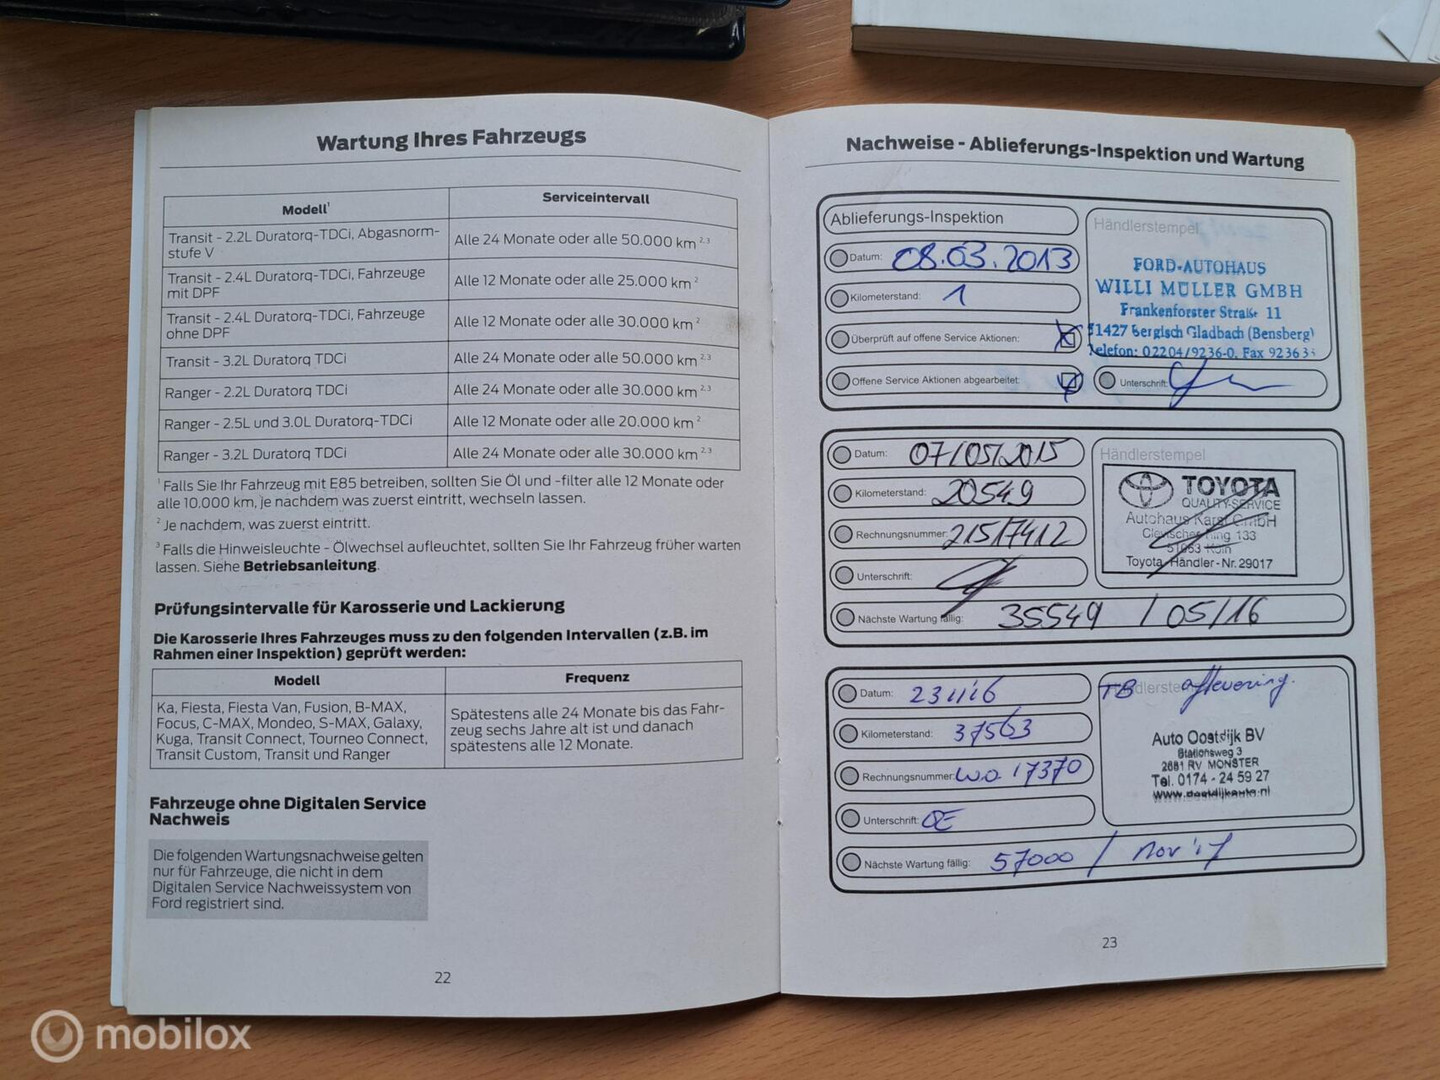 Wartung Ihres Fahrzeugs
Modell¹ Serviceintervall
Transit - 2.2L Duratorq-TDCi, Abgasnorm-
stufe V
Alle 24 Monate oder alle 50.000 km ²·³
Transit - 2.4L Duratorq-TDCi, Fahrzeuge
mit DPF
Alle 12 Monate oder alle 25.000 km ²
Transit - 2.4L Duratorq-TDCi, Fahrzeuge
ohne DPF
Alle 12 Monate oder alle 30.000 km ²
Transit - 3.2L Duratorq TDCi Alle 24 Monate oder alle 50.000 km ²·³
Ranger - 2.2L Duratorq TDCi Alle 24 Monate oder alle 30.000 km ²·³
Ranger - 2.5L und 3.0L Duratorq-TDCi Alle 12 Monate oder alle 20.000 km ²
Ranger - 3.2L Duratorq TDCi Alle 24 Monate oder alle 30.000 km ²·³
¹ Falls Sie Ihr Fahrzeug mit E85 betreiben, sollten Sie Öl und -filter alle 12 Monate oder
alle 10.000 km, je nachdem was zuerst eintritt, wechseln lassen.
² Je nachdem, was zuerst eintritt.
³ Falls die Hinweisleuchte - Ölwechsel aufleuchtet, sollten Sie Ihr Fahrzeug früher warten
lassen. Siehe Betriebsanleitung.
Prüfungsintervalle für Karosserie und Lackierung
Die Karosserie Ihres Fahrzeuges muss zu den folgenden Intervallen (z.B. im
Rahmen einer Inspektion) geprüft werden:
Modell Frequenz
Ka, Fiesta, Fiesta Van, Fusion, B-MAX,
Focus, C-MAX, Mondeo, S-MAX, Galaxy,
Kuga, Transit Connect, Tourneo Connect,
Transit Custom, Transit und Ranger
Spätestens alle 24 Monate bis das Fahr-
zeug sechs Jahre alt ist und danach
spätestens alle 12 Monate.
Fahrzeuge ohne Digitalen Service
Nachweis
Die folgenden Wartungsnachweise gelten
nur für Fahrzeuge, die nicht in dem
Digitalen Service Nachweissystem von
Ford registriert sind.
22
Nachweise - Ablieferungs-Inspektion und Wartung
Ablieferungs-Inspektion
Datum: 08.03.2013
Kilometerstand: 1
Überprüft auf offene Service Aktionen:
Offene Service Aktionen abgearbeitet:
Händlerstempel
FORD-AUTOHAUS
WILLI MÜLLER GMBH
Frankenforster Straße 11
51427 Bergisch Gladbach (Bensberg)
Telefon: 02204/9236-0, Fax 9236
Unterschrift:
Datum: 07/05/2015
Kilometerstand: 20549
Rechnungsnummer: 21517412
Unterschrift:
Händlerstempel
TOYOTA
QUALITY-SERVICE
Autohaus Karst GmbH
Clevischer Ring 133
51063 Köln
Toyota Händler - Nr. 29017
Nächste Wartung fällig: 35549 / 05/16
Datum: 231116
Kilometerstand: 37563
Rechnungsnummer: W.O. 17370
Unterschrift: OE
Händlerstempel
TB aflevering.
Auto Oostdijk BV
Stationsweg 3
2681 RV MONSTER
Tel. 0174 - 24 59 27
www.oostdijkauto.nl
Nächste Wartung fällig: 57000 / nov '17
23
mobilox